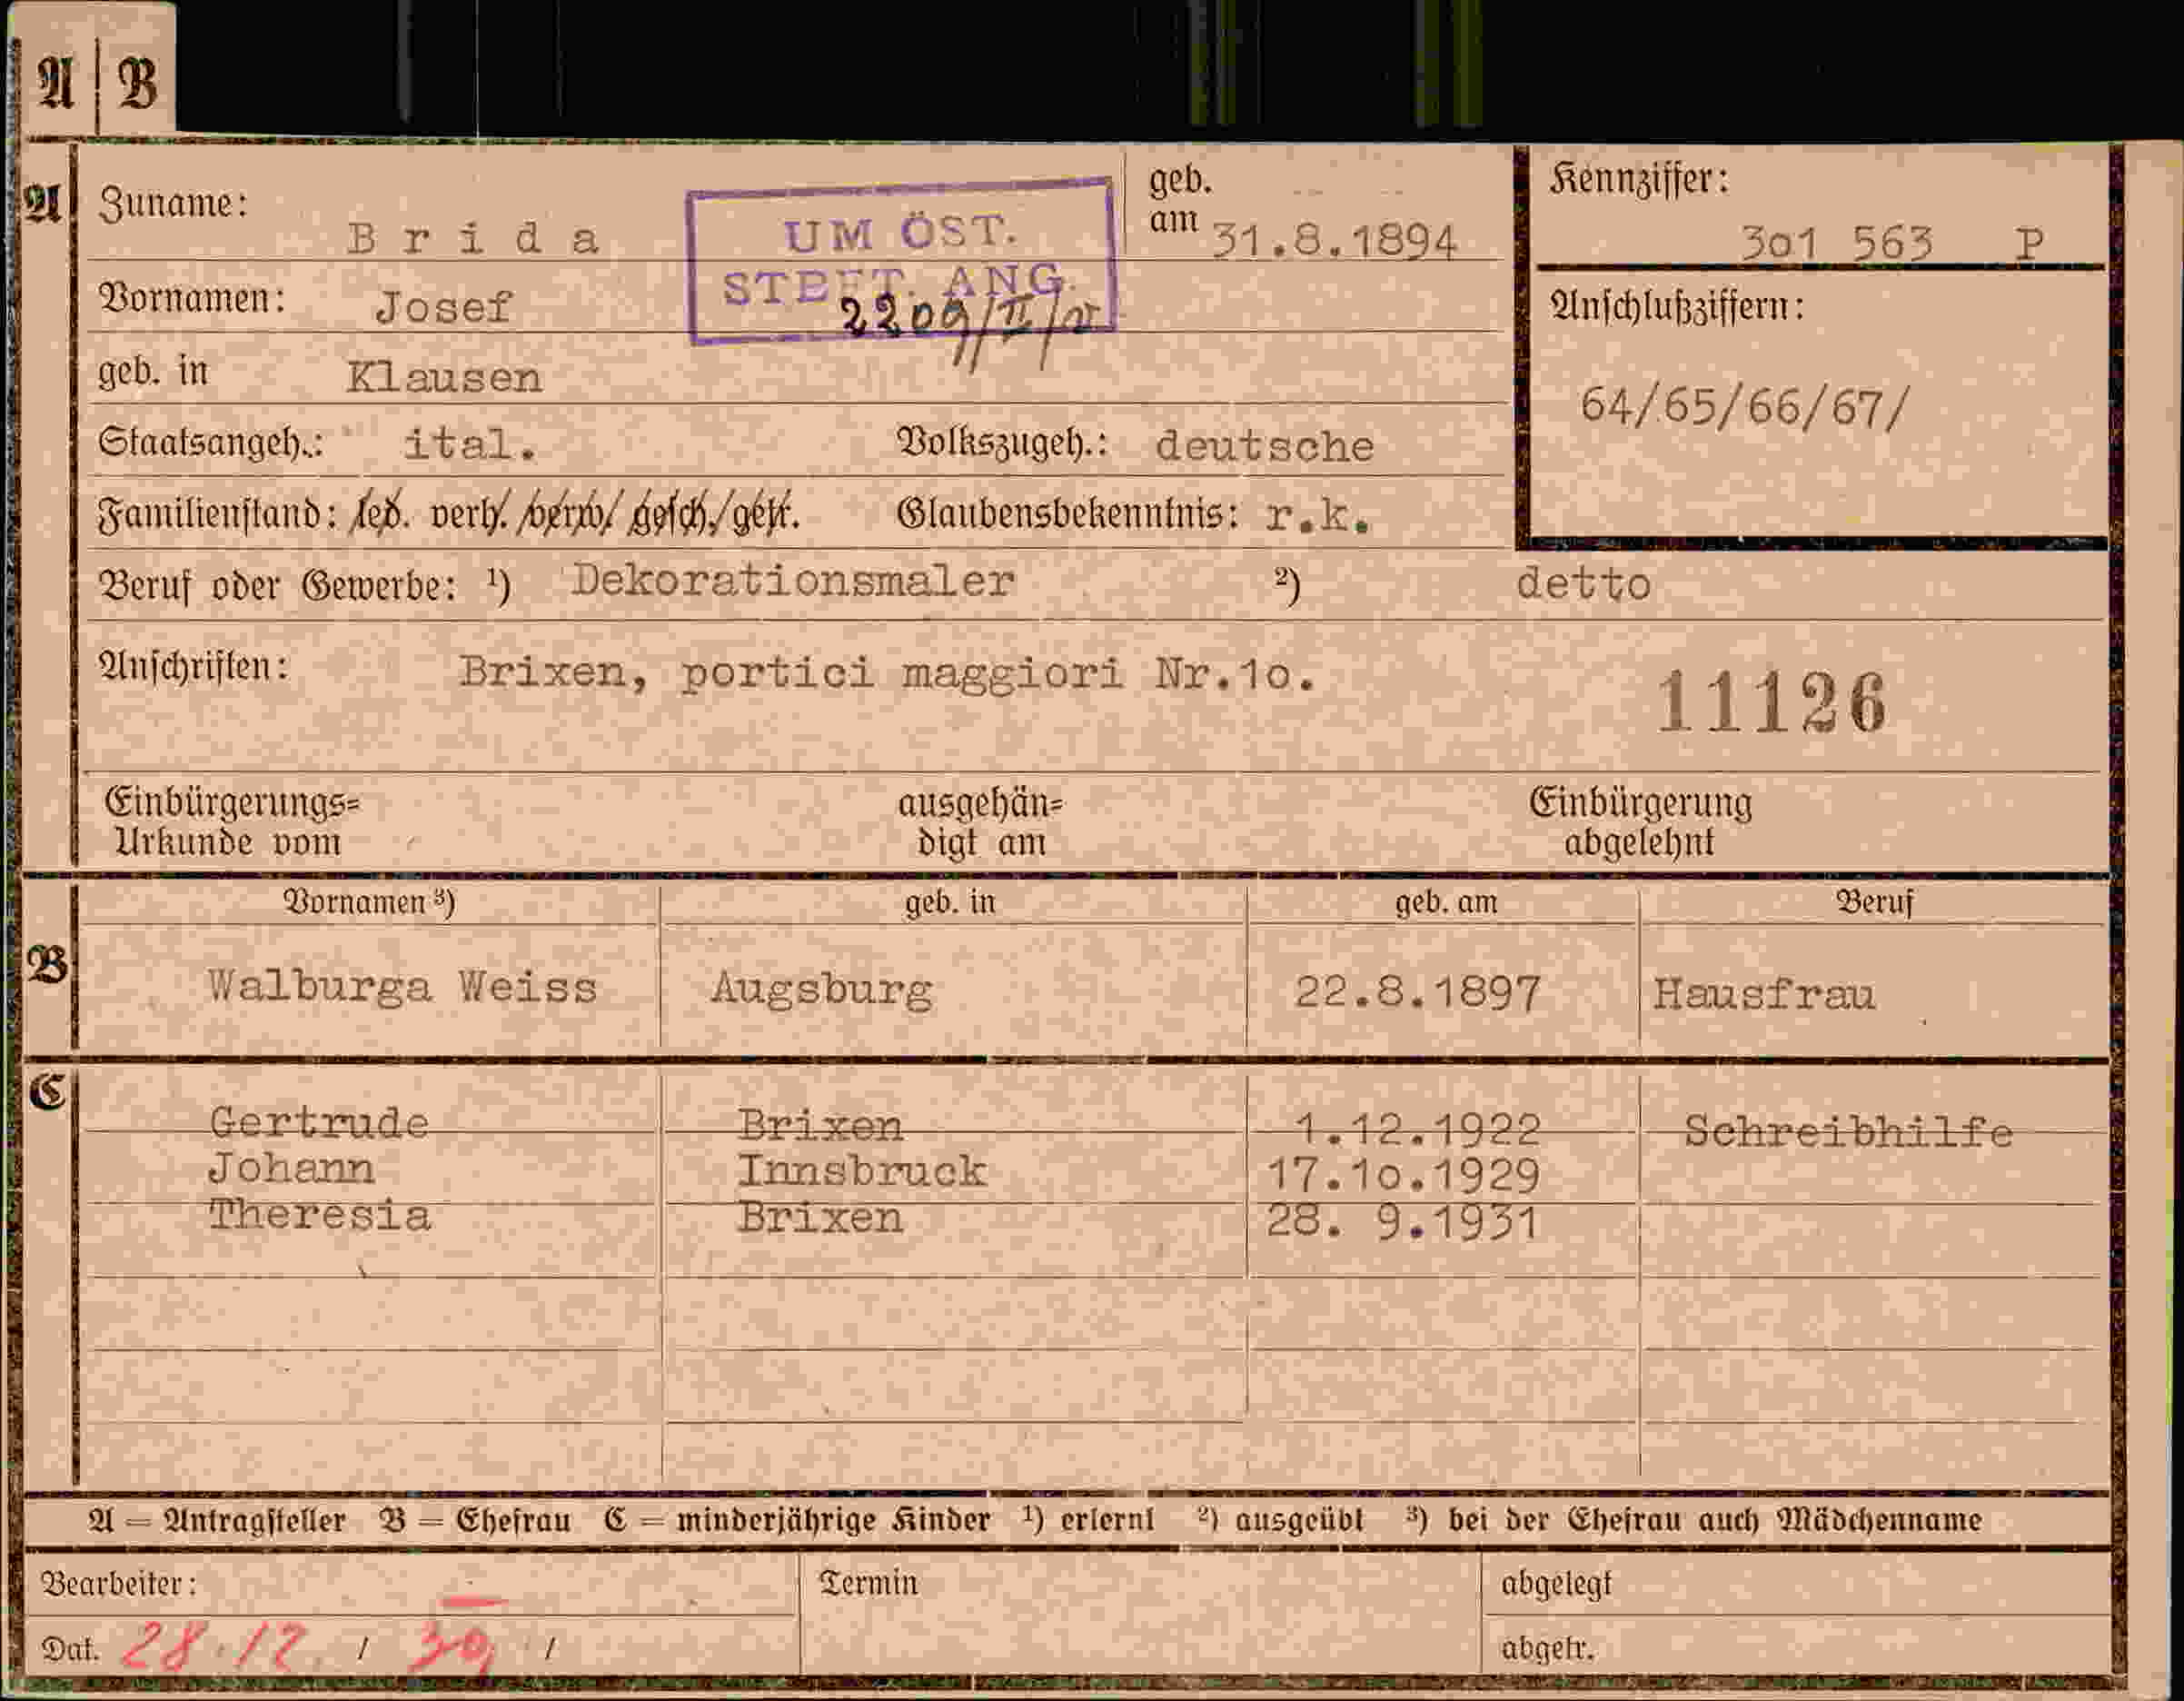 A B
A Zuname: Brida
UM ÖST.
STBFT. ANG.
2209/II/
geb. am 31.8.1894
Kennziffer: 301 563 P
Vornamen: Josef
Anschlußziffern:
64/65/66/67/
geb. in Klausen
Staatsangeh.: ital. Volkszugeh.: deutsche
Familienstand: led. verh. verw. gesch. getr. Glaubensbekenntnis: r.k.
Beruf oder Gewerbe: ¹) Dekorationsmaler ²) detto
Anschriften: Brixen, portici maggiori Nr.10.
11126
Einbürgerungs= ausgehän= Einbürgerung
Urkunde vom digt am abgelehnt
Vornamen ³) geb. in geb. am Beruf
B Walburga Weiss Augsburg 22.8.1897 Hausfrau
C Gertrude Brixen 1.12.1922 Schreibhilfe
Johann Innsbruck 17.10.1929
Theresia Brixen 28. 9.1931
A = Antragsteller B = Ehefrau C = minderjährige Kinder ¹) erlernt ²) ausgeübt ³) bei der Ehefrau auch Mädchenname
Bearbeiter: Termin abgelegt
Dat. 28.12. / 39 / abgetr.